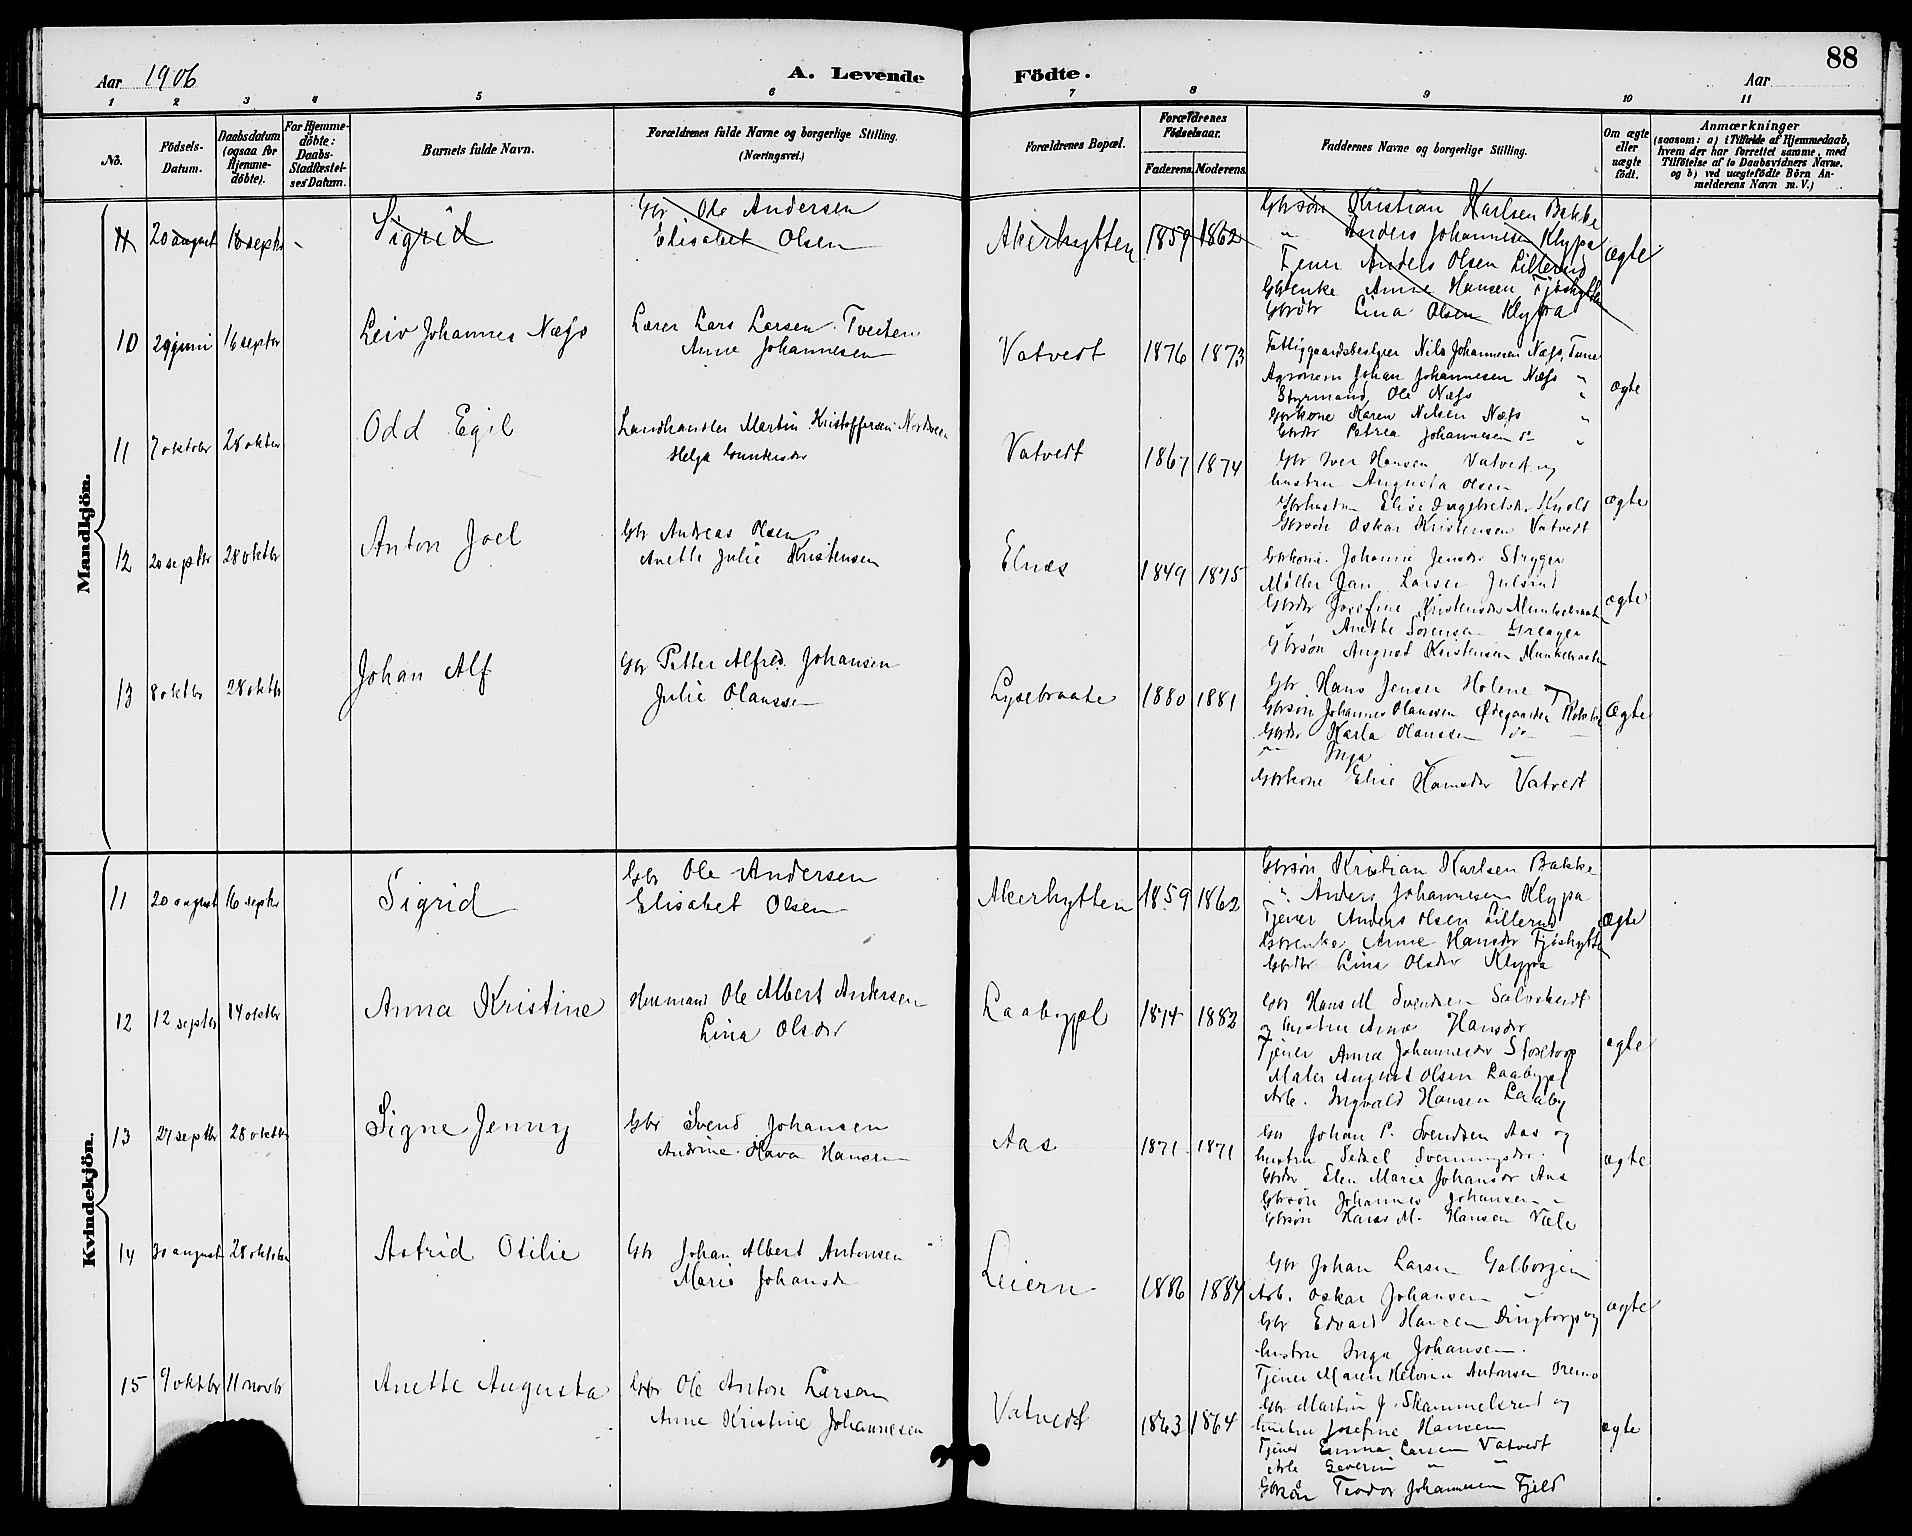 88
Aar 1906
A. Levende Födte.
Aar
1 2 3 4 5 6 7 8 9 10 11
No.
Födsels-Datum.
Daabsdatum (ogsaa for Hjemme-döbte).
For Hjemme-döbte: Daabs-Stadfæstel-ses Datum.
Barnets fulde Navn.
Forældrenes fulde Navne og borgerlige Stilling.
(Næringsvei.)
Forældrenes Bopæl.
Forældrenes Födselsaar.
Faderens. Moderens.
Faddernes Navne og borgerlige Stilling.
Om ægte eller uægte födt.
Anmærkninger
(saasom: a) i Tilfælde af Hjemmedaab,
hvem der har forrettet samme, med
Tilföielse af to Daabsvidners Navne,
og b) ved uægtefödte Börn An-
melderens Navn m. V.)
Mandkjön.
11 20 august 16 septbr - Sigrid
Gbr Ole Andersen
Elisabet Olsen
Akerhytten 1859 1862
Gbrsøn Kristian Karlsen Bakke
" Anders Johannesen Klypa
Tjener Anders Olsen Lillerud
Gbrenke Anne Hansen Fjøshytten
Gbrdtr Lina Olsen Klypa
ægte
10 29 juni 16 septbr Leiv Johannes Næss
Lærer Lars Larsen Tveiten
Anne Johannesen
Vatvedt 1876 1873
Fattiggaardsbestyrer Nils Johannesen Næss, Tune
Agronom Johan Johannesen Næss "
Styrmand Ole Næss "
Gbrkone Karen Nilsen Næss "
Gbrdtr Petrea Johannesen "
ægte
11 7 oktober 28 oktbr Odd Egil
Landhandler Martin Kristoffersen
Helga
Vatvedt 1867 1874
Gbr Iver Hansen Vatvedt og
hustru Augusta Olsen
Elise
Gbrsøn Oskar Kristensen Vatvedt
ægte
12 20 septbr 28 oktbr Anton Joel
Gbr Andreas Olsen
Anette Julie Kristensen
Elnæs 1849 1875
Gbrkone Johanne
Møller Jan Larsen
Gbrdtr Josefine
Anette Sørensen
Gbrsøn August Kristensen
ægte
13 8 oktbr 28 oktbr Johan Alf
Gbr Petter Alfred Johansen
Julie Olaussen
Lysebraate 1880 1881
Gbr Hans Jensen Holene
Gbrsøn Johannes Olaussen Ødegaarden
Gbrdtr Karla Olaussen do
" Inga
Gbrkone Elise Hansdtr Vatvedt
Ægte
Kvindekjön.
11 20 august 16 septbr Sigrid
Gbr Ole Andersen
Elisabet Olsen
Akerhytten 1859 1862
Gbrsøn Kristian Karlsen Bakke
" Anders Johannesen Klypa
Tjener Anders Olsen Lillerud
Gbrenke Anne Hansdtr Fjøshytten
Gbrdtr Lina Olsdtr Klypa
ægte
12 12 septbr 14 oktbr Anna Kristine
Ole Albert Andersen
Lina Olsdtr
Laabypel 1874 1882
Gbr Hans M Svendsen
og hustru Anne Hansdtr
Tjener Anna Johannesdtr Stortorp
Maler August Olsen Laabypel
Arb. Ingvald Hansen Laaby
ægte
13 27 septbr 28 oktbr Signe Jenny
Gbr Svend Johansen
Andrine Hava Hansen
Aas 1871 1871
Gbr Johan P. Svendsen Aas og
hustru Sidsel
Gbrdtr Elen Marie Johansdtr Aas
Gbrsøn Johannes Johansen "
Gbrsøn Hans M. Hansen Væle
ægte
14 30 august 28 oktober Astrid Otilie
Gbr Johan Albert Antonsen
Marie Johansdr
Leiern 1886 1884
Gbr Johan Larsen Galborgen
Arb. Oskar Johansen "
Gbr Edvard Hansen Dingtorp og
hustru Inga Johansen.
Tjener Maren Antonsen
ægte
15 9 oktbr 11 novbr Anette Augusta
Gbr Ole Anton Larsen
Anne Kristine Johannesen
Vatvedt 1863 1864
Gbr Martin J. Skammelsrud og
hustru Josefine Hansen
Tjener Emma Larsen Vatvedt
Arb Severin " "
Gbrsøn Teodor Johannesen Fjeld
ægte